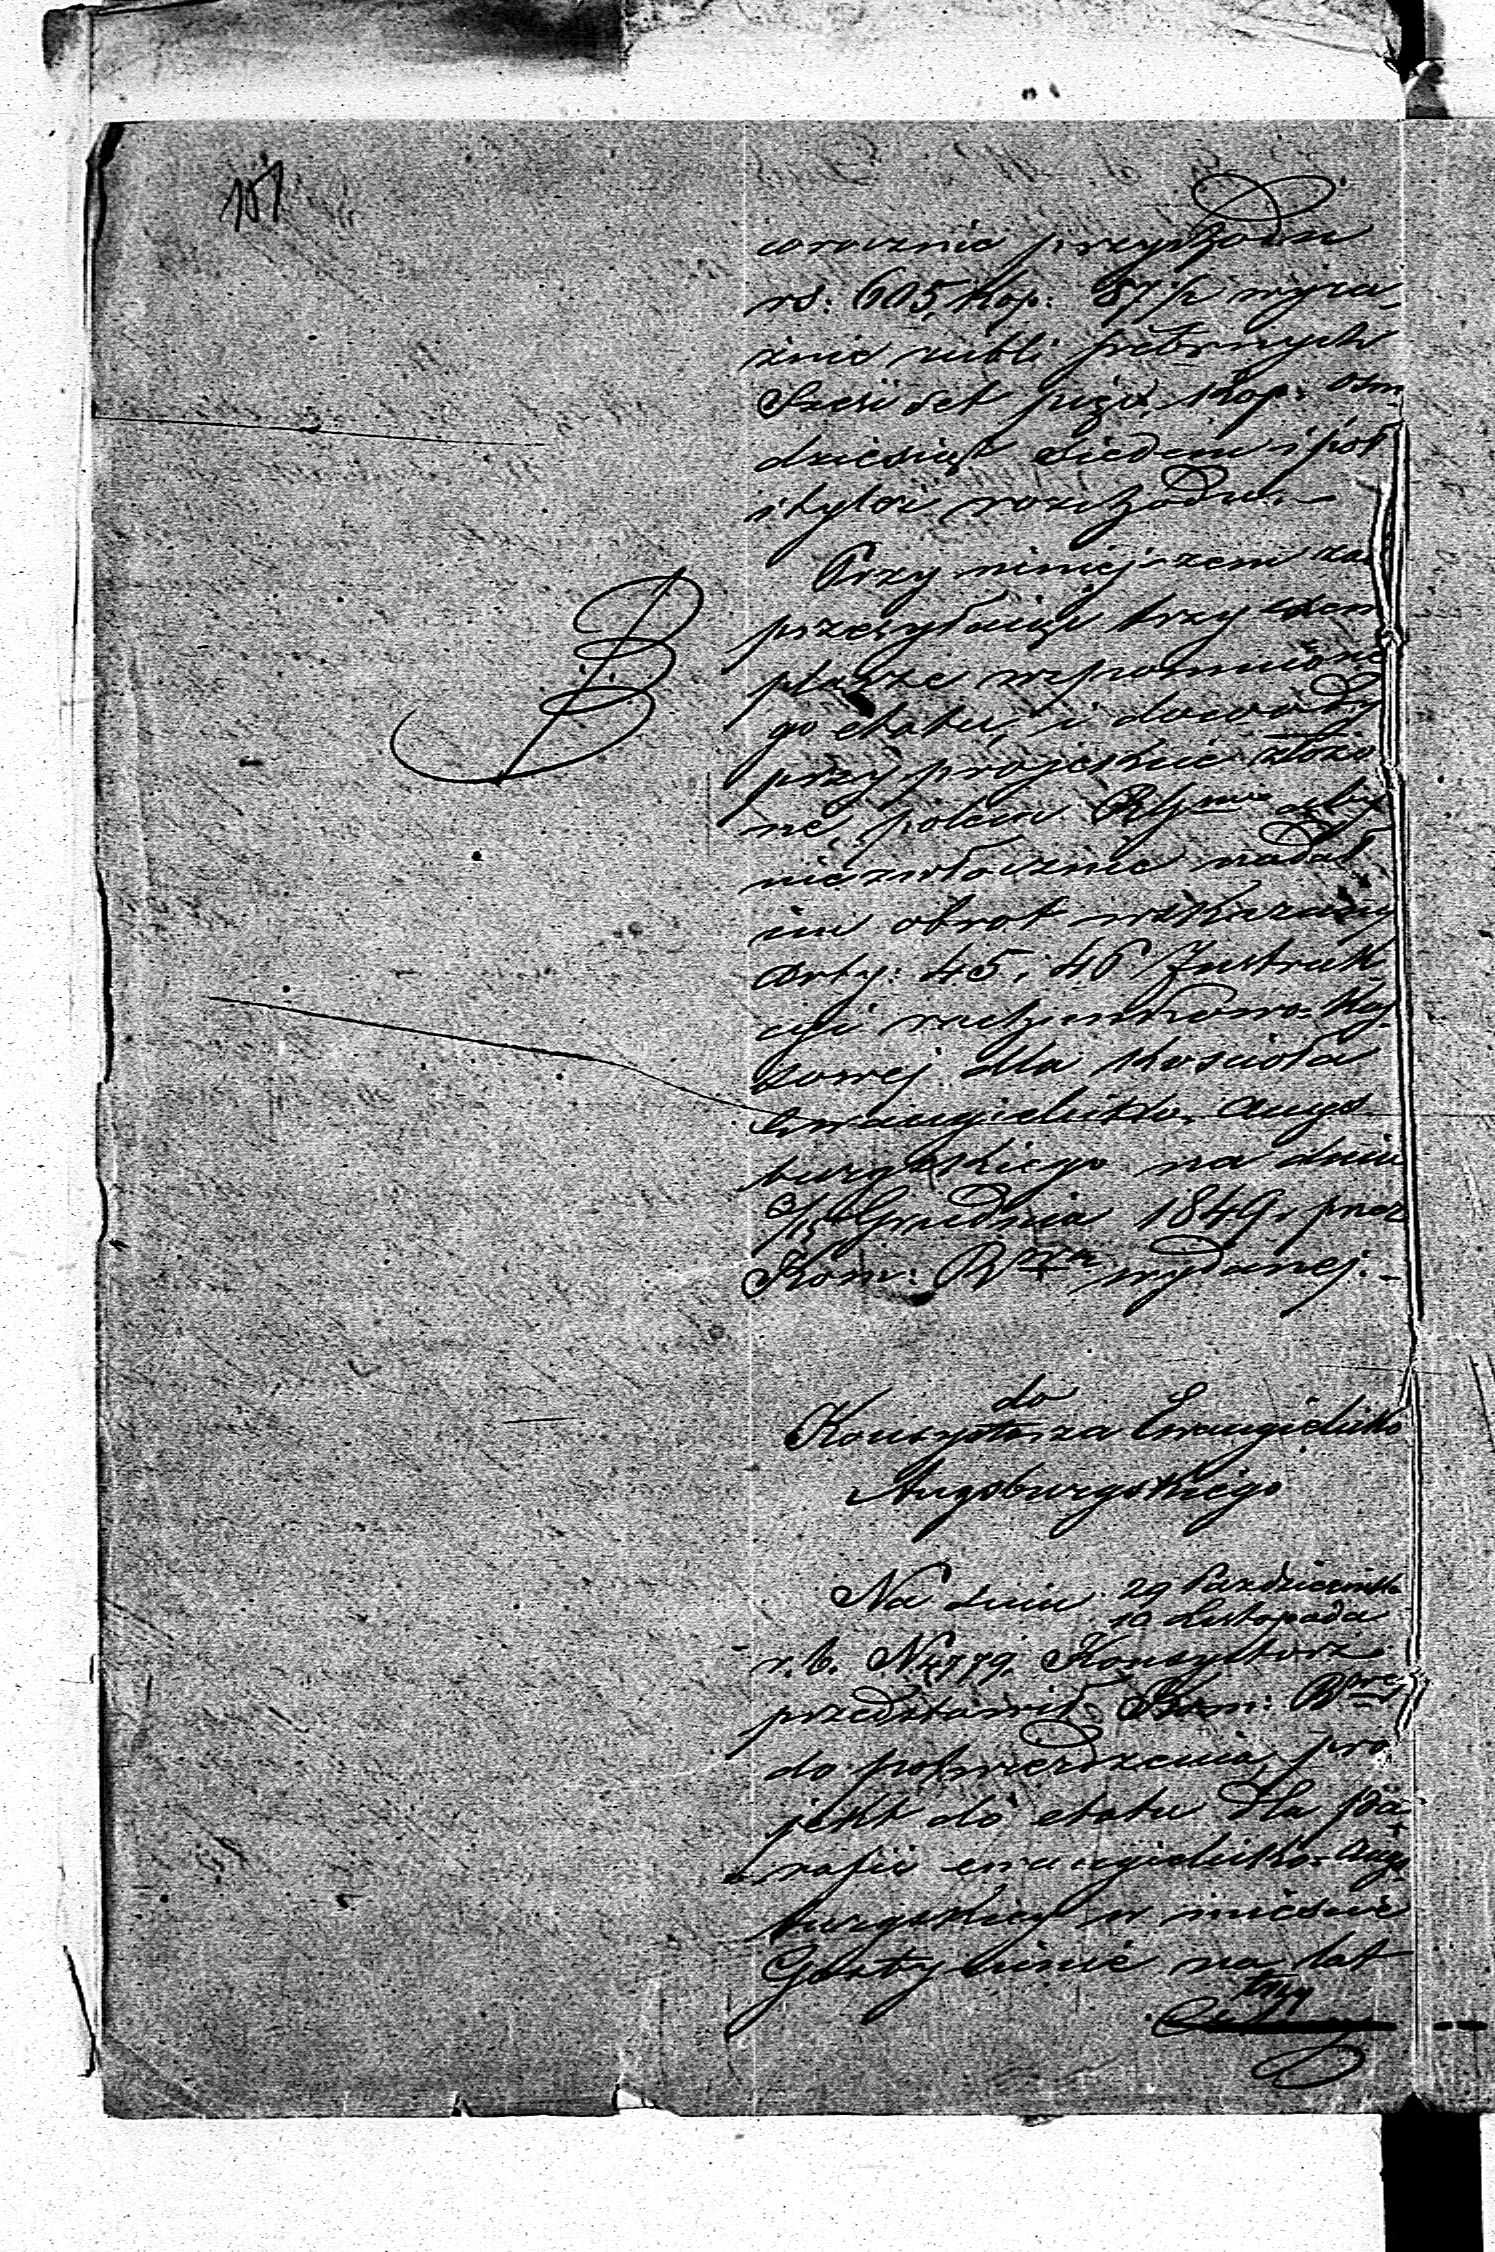 101
corocznie przychodu
rs: 605, kop: 87½ wyra-
źnie rubli srebrnych
Sześćset pięć, kop: ośm
dziesiąt siedem i pół
i tyleż rozchodu. —
Przy niniejszem zaś
przesyłając trzy exem
plarze wspomnione
go etatu, i dowody
przy projekcie złożo
ne, poleca aby
niezwłocznie nadał
im obrot wskazany
Arty: 45 i 46 Instruk
cyi rachunkowo-Kas
sowej dla Kościoła
Ewangielicko-Augs-
burgskiego na dniu
3/15 Grudnia 1849 r. przez
Kom: Rząd. wydanej. —
B
do
Konsystorza Ewangielicko
Augsburgskiego
Na dniu 29 Października
10 Listopada
r. b. N 4779. Konsystorz
przedstawił Kom: Rząd.
do potwierdzenia, pro
jekt do etatu dla pa-
rafii ewangielicko-Augs
burgskiej w mieście
Gostyninie na lat
trzy